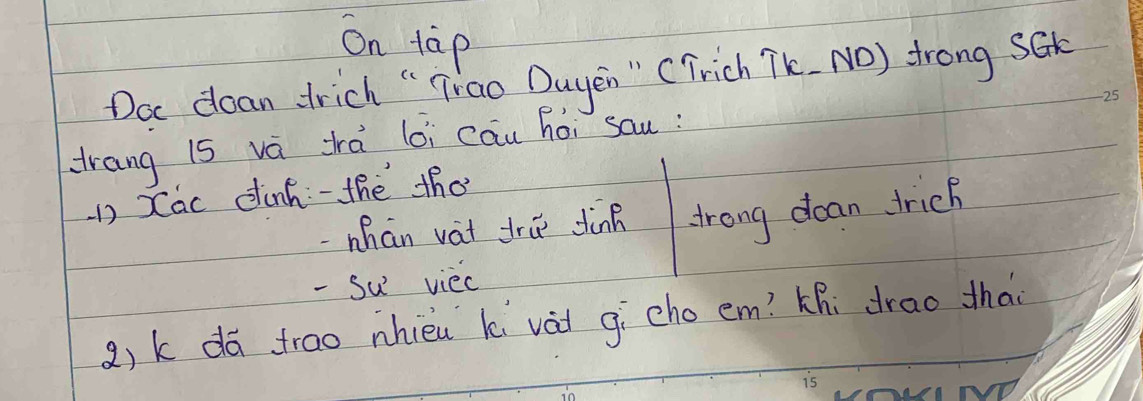 Ôn tập
Đọc đoạn trích "Trao Duyên" (Trích TK-ND) trong SGK
trang 15 và trả lời câu hỏi sau:
1) Xác định: - thể thơ
- nhân vật trữ tình | trong đoạn trích
- sự việc
2) K đã trao nhiều kỉ vật gì cho em? khi trao thái
25
10
15
KOKUYO